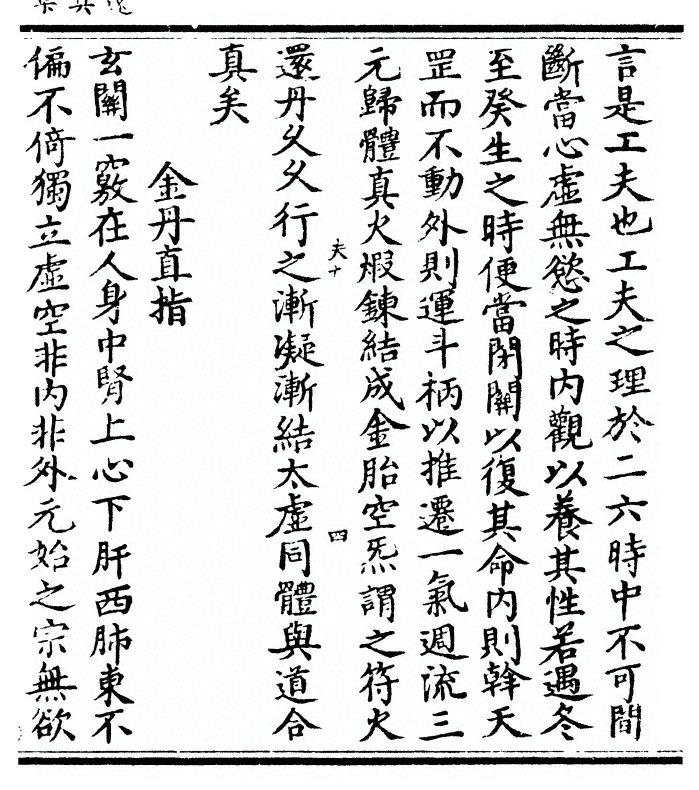 言是工夫也工夫之理於二六時中不可間
斷當心虛無慾之時內觀以養其性若遇冬
至癸生之時便當閉關以復其命內則斡天
罡而不動外則運斗柄以推遷一氣週流三
元歸體真火煅鍊結成金胎空炁謂之符火
夫十
四
還丹久久行之漸凝漸結太虛同體與道合
真矣
金丹直指
玄關一竅在人身中腎上心下肝西肺東不
偏不倚獨立虛空非內非外元始之宗無欲